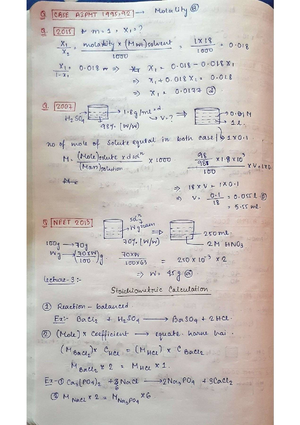 Q [CASE AIPMT 1995,92] → Molality
Q [2015] m = 1 • X₁ = ?
X₁/X₂ = molality × (Mm)solvent / 1000 = 1×18/1000 = 0.018
X₁/1-X₁ = 0.018 ⇒ X₁ = 0.018 - 0.018X₁
⇒ X₁ + 0.018X₁ = 0.018
X₁ = 0.0177
Q [2007] 1.8g/mL = d 0.1M
H₂SO₄ → V = ? 1L
98% [W/W]
no of mole of solute equal in both case 1×0.1
M = (Mole)solute × d soln / (Mass)solution × 1000
98/98 × 1.8 × 10³ / 100 × V = 1×0.1
⇒ 18 × V = 1×0.1
⇒ V = 0.1/18 = 0.0055L
= 5.55 mL
Q [NEET 2013]
100g → 70g 70% [W/W] 250 mL
2M HNO₃
70×W / 100×63 = 250 × 10⁻³ × 2
⇒ W = 45g
Lecture-3:-
Stoichiometric Calculation
① Reaction - balanced
Ex:- BaCl₂ + H₂SO₄ → BaSO₄ + 2HCl
② (Mole) × Coefficient → equate karna hai.
(M BaCl₂) × C HCl = (M HCl) × C BaCl₂
M BaCl₂ × 2 = M HCl × 1.
Ex-① Ca₃(PO₄)₂ + 6NaCl → 2Na₃PO₄ + 3CaCl₂
① M NaCl × 2 = M Na₃PO₄ × 6